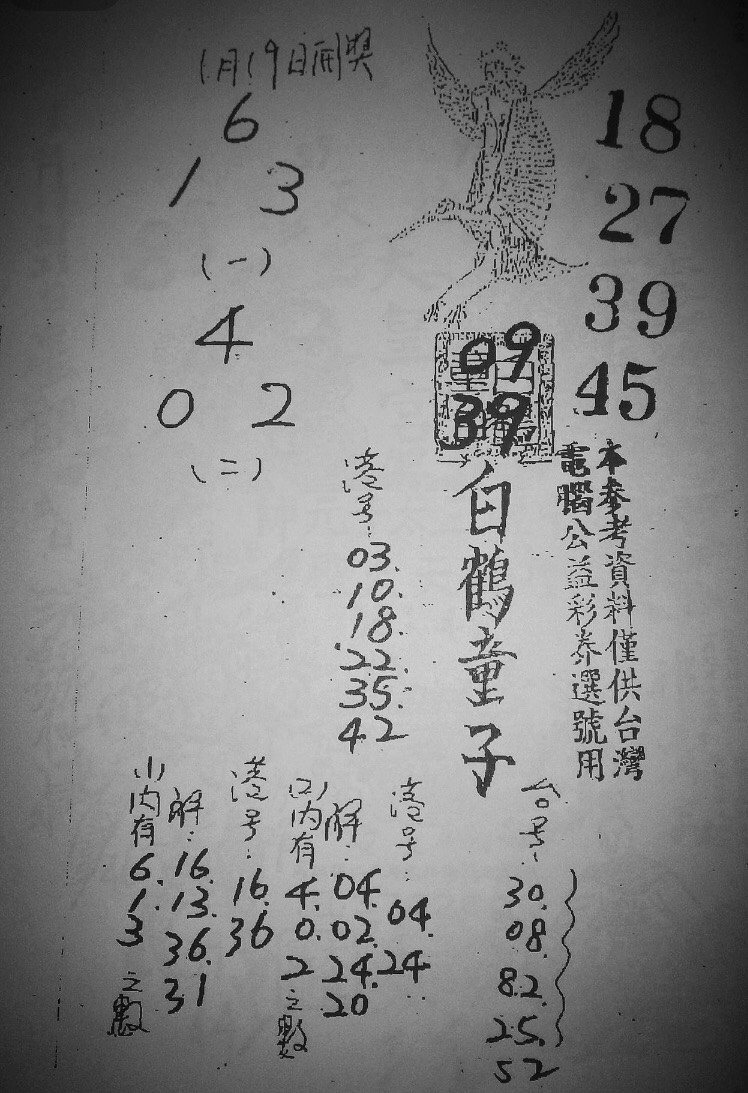 1月19日開獎
6
1 3
(一)
4
0 2
(二)
18
27
39
45
09
39
白鶴童子
本參考資料僅供台灣
電腦公益彩券選號用
港号:
03.
10.
18.
22.
35.
42
台号:
30.
08.
82.
25.
52
港号:
04.
24
解:
04.
02.
24.
20
(二)内有
4.
0.
2
之數
港号:
16.
36
解:
16.
13.
36.
31
(一)内有
6.
1.
3
之數